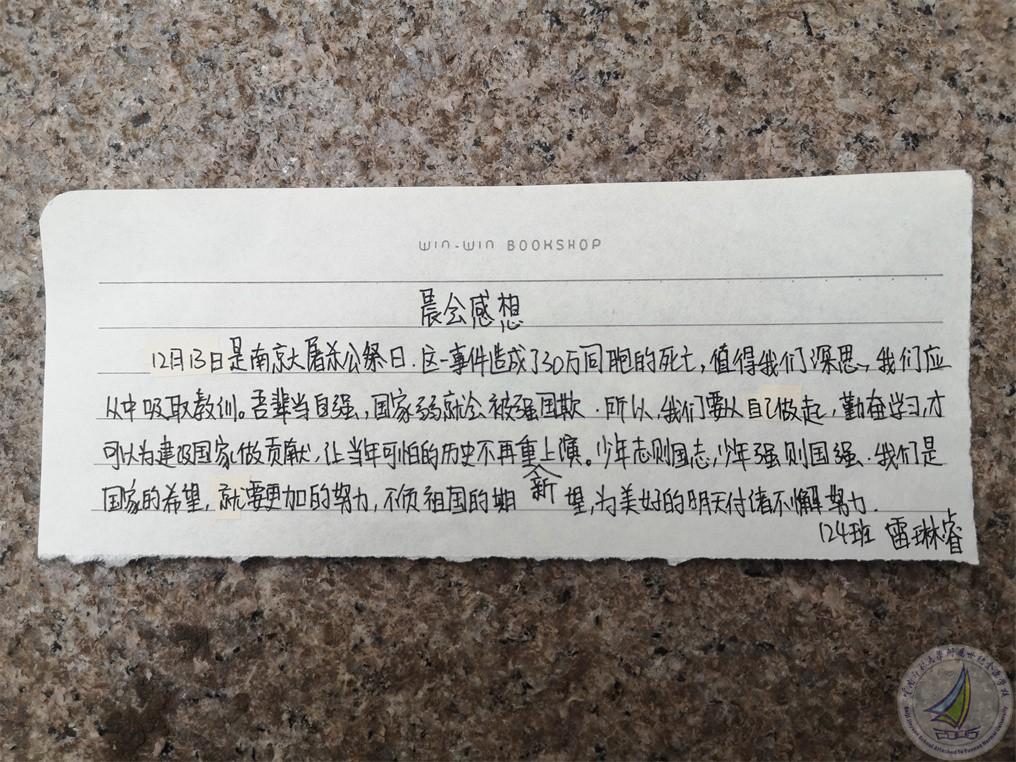 WIN-WIN BOOKSHOP
晨会感想
12月13日是南京大屠杀公祭日.这一事件造成了30万同胞的死亡,值得我们深思,我们应
从中吸取教训。吾辈当自强,国家弱就会被强国欺.所以,我们要从自己做起,勤奋学习,才
可以为建设国家做贡献,让当年可怕的历史不再重上演。少年志则国志,少年强则国强.我们是
新
国家的希望,就要更加的努力,不负祖国的期望,为美好的明天付诸不懈努力.
124班 雷琳睿